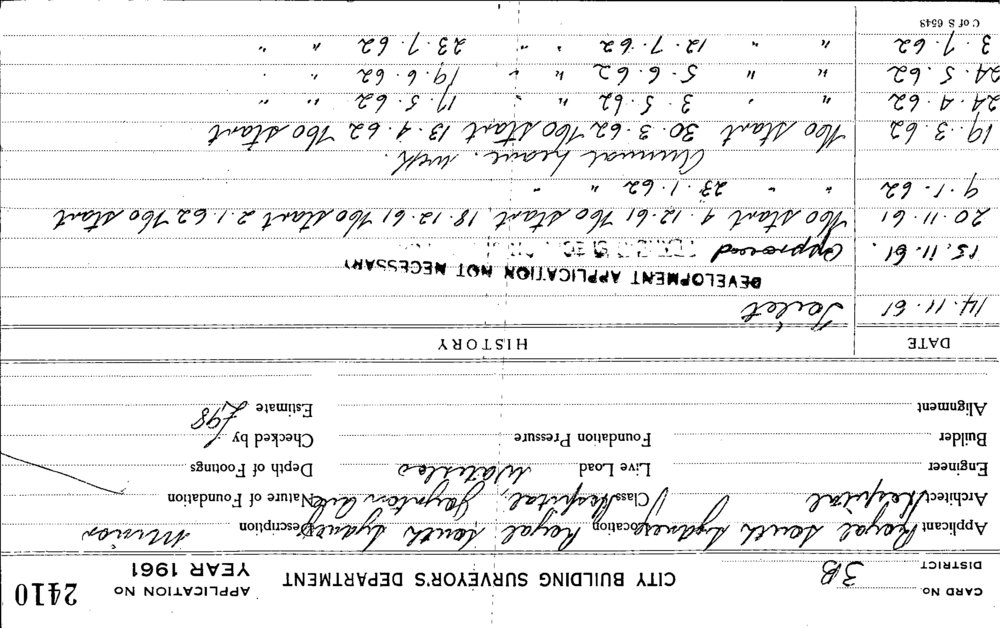 CARD NO.
DISTRICT 3B
CITY BUILDING SURVEYOR'S DEPARTMENT
APPLICATION No 2410
YEAR 1961
Applicant Royal South Sydney Location Royal South Sydney Description Minor
Architect Hospital Class Hospital, Joynton Ave Nature of Foundation
Engineer Live Load Waterloo Depth of Footings
Builder Foundation Pressure Checked by
Alignment Estimate £98
DATE HISTORY
14.11.61 Toilet
DEVELOPMENT APPLICATION NOT NECESSARY
15.11.61. Approved
20.11.61 Woo start 4.12.61 Woo start, 18.12.61 Woo start 2.1.62 Woo start
9.1.62 " " 23.1.62 " "
Annual leave.
19.3.62 Woo start 30.3.62 Woo start 13.4.62 Woo start
24.4.62 " " 3.5.62 " " 17.5.62 " "
24.5.62 " " 5.6.62 " " 19.6.62 " "
3.7.62 " " 12.7.62 " " 23.7.62 " "
C OF S 6548